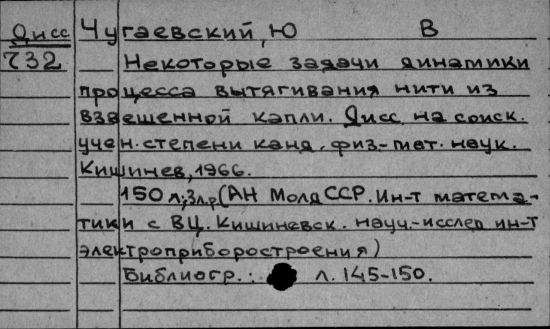 Дисс Чугаевский, Ю В
732 Некоторые задачи динамики
процесса вытягивания нити из
взвешенной капли. Дисс. на соиск.
учен. степени канд. физ-мат. наук.
Кишинев, 1966.
150 л; 3л.р (АН МолдССР. Ин-т матема-
тики с ВЦ. Кишиневск. науч.-исслед ин-т
электроприборостроения)
Библиогр.: л. 145-150.